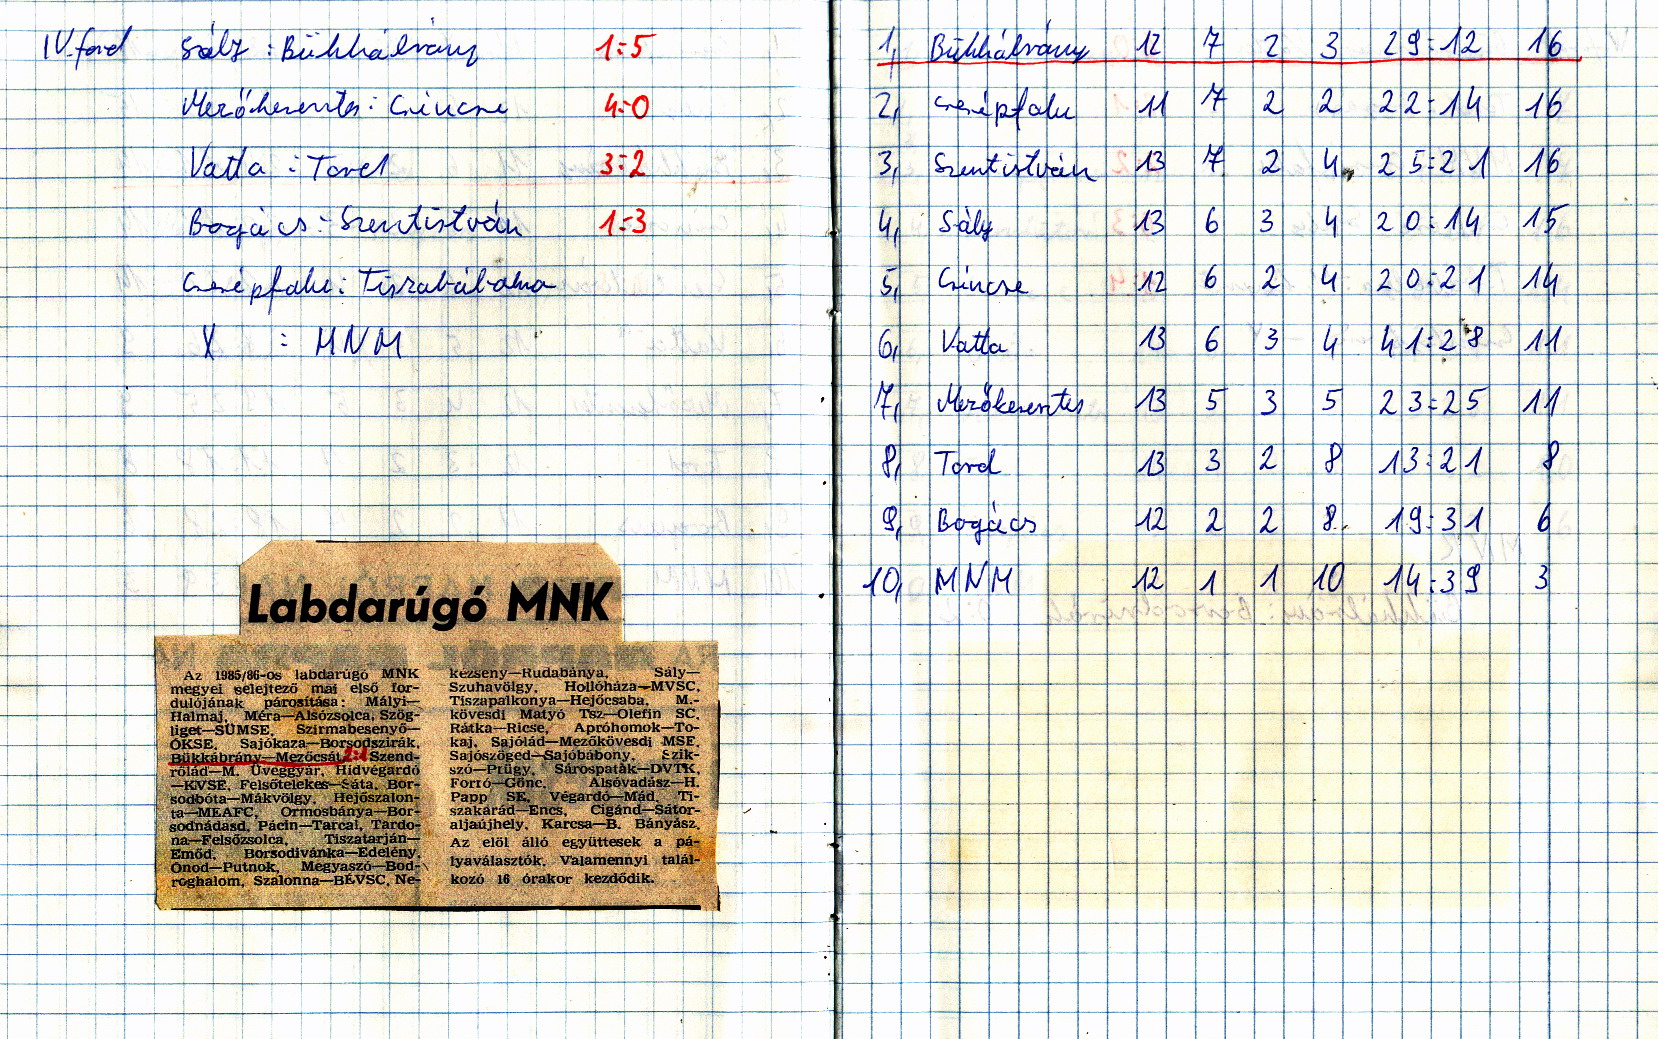 IV. ford Sály : Bükkábrány 1:5
Mezőkeresztes : Csincse 4:0
Vatta : Tard 3:2
Bogács : Szentistván 1:3
Cserépfalu : Tiszabábolna
X : MNM
Labdarúgó MNK
Az 1985/86-os labdarúgó MNK
megyei selejtező mai első for-
dulójának párosítása: Mályi—
Halmaj, Méra—Alsózsolca, Szög-
liget—SÜMSE, Szirmabesenyő—
ÓKSE, Sajókaza—Borsodszirák,
Bükkábrány—Mezőcsát, 2:1 Szend-
rőlád—M. Üveggyár, Hidvégardó
—KVSE, Felsőtelekes—Sáta, Bor-
sodbóta—Mákvölgy, Hejőszalon-
ta—MEAFC, Ormosbánya—Bor-
sodnádasd, Pácin—Tarcal, Tardo-
na—Felsőzsolca, Tiszatarján—
Emőd, Borsodivánka—Edelény,
Ónod—Putnok, Megyaszó—Bod-
roghalom, Szalonna—BÉVSC, Ne-
kézseny—Rudabánya, Sály—
Szuhavölgy, Hollóháza—MVSC,
Tiszapalkonya—Hejőcsaba, M.-
kövesdi Matyó Tsz—Olefin SC,
Rátka—Ricse, Apróhomok—To-
kaj, Sajólád—Mezőkövesdi MSE,
Sajószöged—Sajóbábony, Szik-
szó—Prügy, Sárospatak—DVTK,
Forró—Gönc, Alsóvadász—H.
Papp SE, Végardó—Mád, Ti-
szakarád—Encs, Cigánd—Sátor-
aljaújhely, Karcsa—B. Bányász.
Az elöl álló együttesek a pá-
lyaválasztók. Valamennyi talál-
kozó 16 órakor kezdődik.
1, Bükkábrány 12 7 2 3 29:12 16
2, Cserépfalu 11 7 2 2 22:14 16
3, Szentistván 13 7 2 4 25:21 16
4, Sály 13 6 3 4 20:14 15
5, Csincse 12 6 2 4 20:21 14
6, Vatta 13 6 3 4 41:28 11
7, Mezőkeresztes 13 5 3 5 23:25 11
8, Tard 13 3 2 8 13:21 8
9, Bogács 12 2 2 8 19:31 6
10, MNM 12 1 1 10 14:39 3